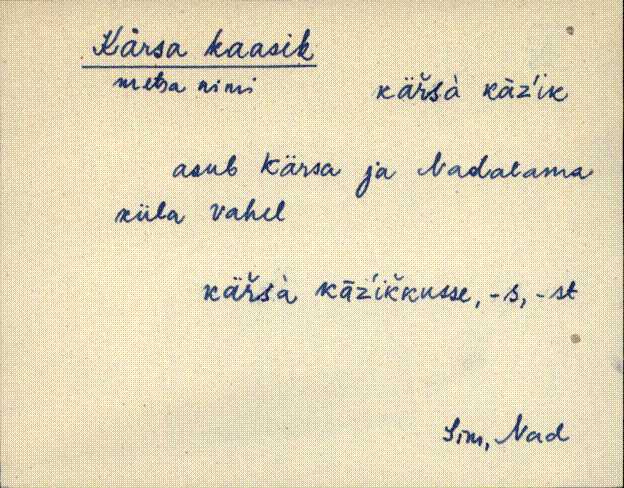 Kärsa kaasik
metsa nimi
kär̆sà kāz'ik
asub Kärsa ja Nadalama
küla vahel
kär̆sà kāz'ik̆kusse, -s, -st
Sim, Nad